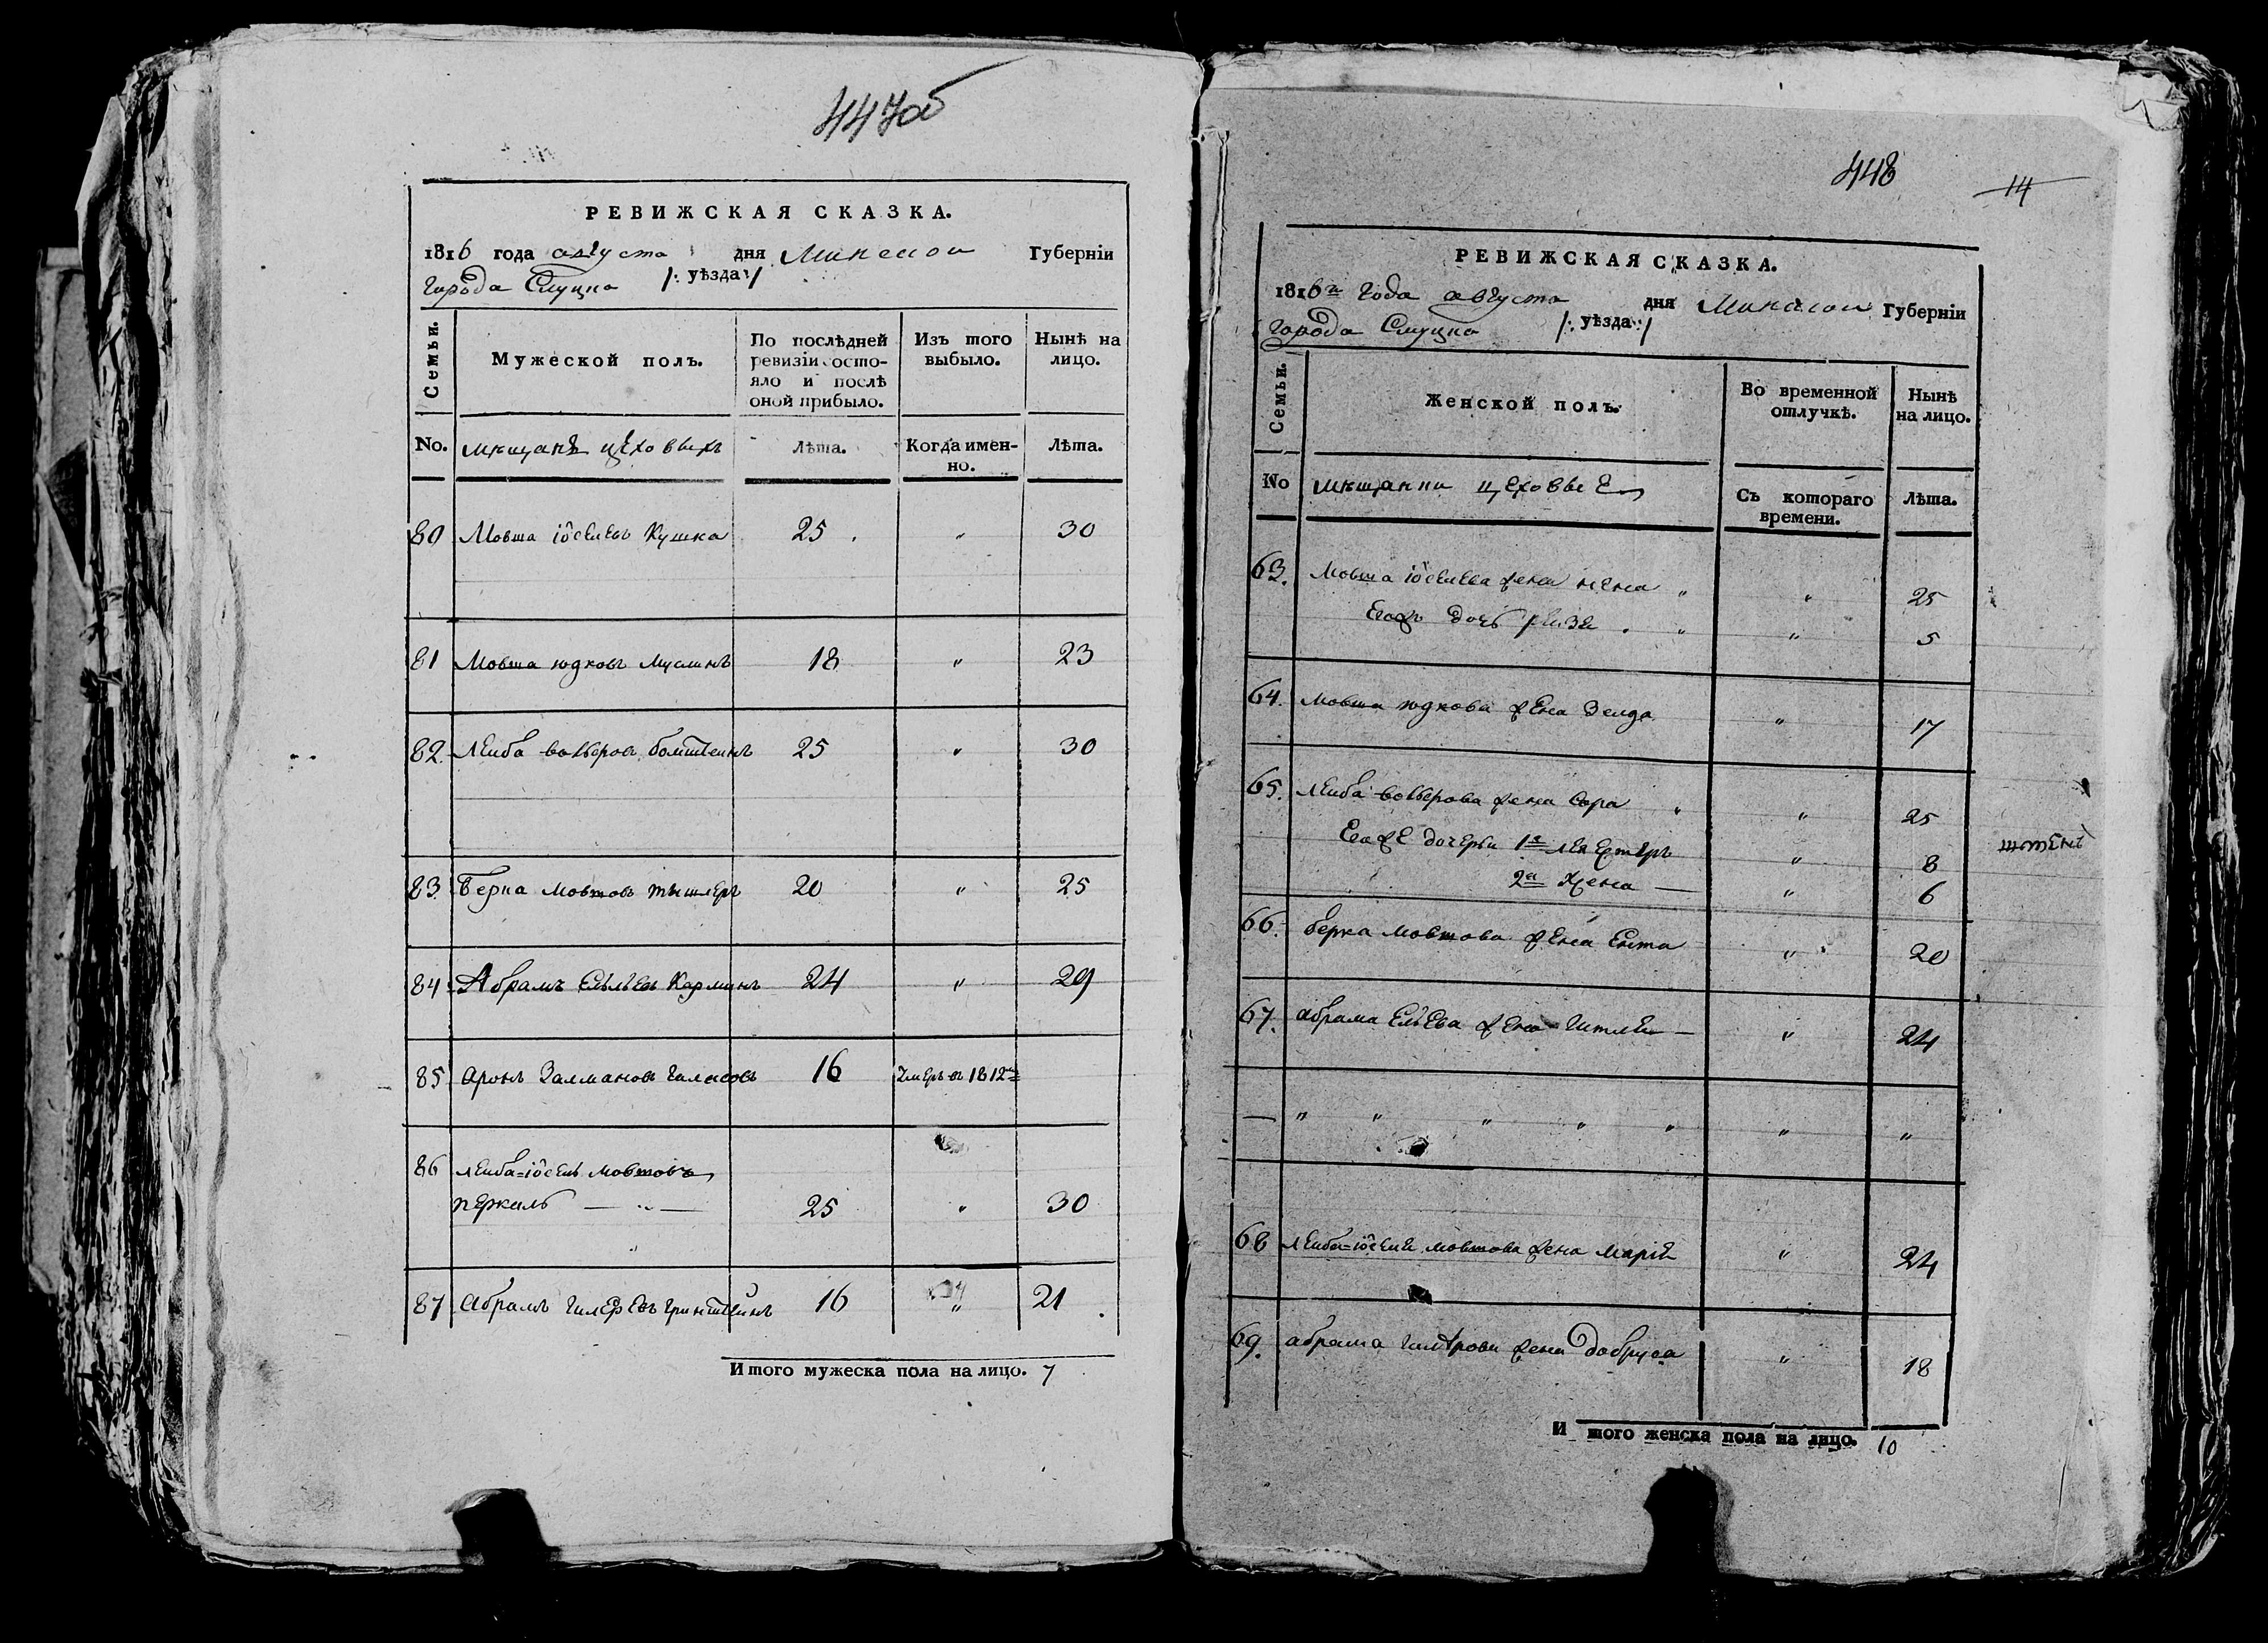 447об
РЕВИЖСКАЯ СКАЗКА.
1816 года августа дня Минской Губерніи
города Слуцка /: уѣзда :/
Семьи.
Мужеской полъ.
По послѣдней ревизіи состо-
яло и послѣ оной прибыло.
Изъ того выбыло.
Нынѣ на лицо.
No. мѣщанъ цеховыхъ Лѣта. Когда имен-
но. Лѣта.
80 Мовша іоселевъ Кушка 25 „ 30
81 Мовша юдковъ Муслинъ 18 „ 23
82. Лейба вольфовъ 25 „ 30
83. Берка Мовшовъ тышлеръ 20 „ 25
84 Абрамъ Карминъ 24 „ 29
85 Аронъ Залмановъ 16 умеръ въ 1812
86 Лейба=іосель мовшовъ
25 „ 30
87 Абрамъ Гринштейнъ 16 „ 21
Итого мужеска пола на лицо. 7
448
14
РЕВИЖСКАЯ СКАЗКА.
1816 года августа дня Минской Губерніи
города Слуцка /: уѣзда :/
Семьи.
Женской полъ.
Во временной отлучкѣ.
Нынѣ на лицо.
No мѣщанки цеховые Съ котораго
времени. Лѣта.
63. Мовша іоселева жена „ „ 25
Еяжъ дочь „ „ 5
64. Мовша юдкова жена Зелда „ 17
65. Лейба вольфова жена Сора „ „ 25
Еяже дочери 1я „ 8
2я Хена — „ 6
66. берка мовшова жена Ента „ 20
67. абрама жена Гитля — „ 24
— „ „ „ „ „ „ „
68 лейба=іоселя мовшова жена „ 24
69. абрама жена добруса „ 18
Итого женска пола на лицо. 10